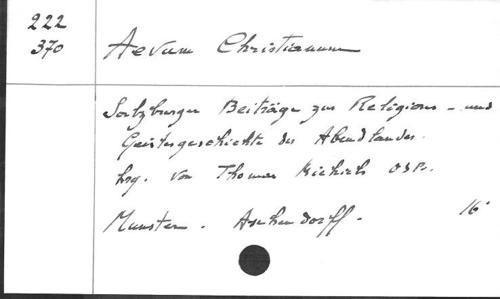 222
370
Aevum Christianum
Salzburger Beiträge zur Religions- und
Geistesgeschichte des Abendlandes.
hrg. von Thomas Michels OSB.
Münster. Aschendorff. 16°